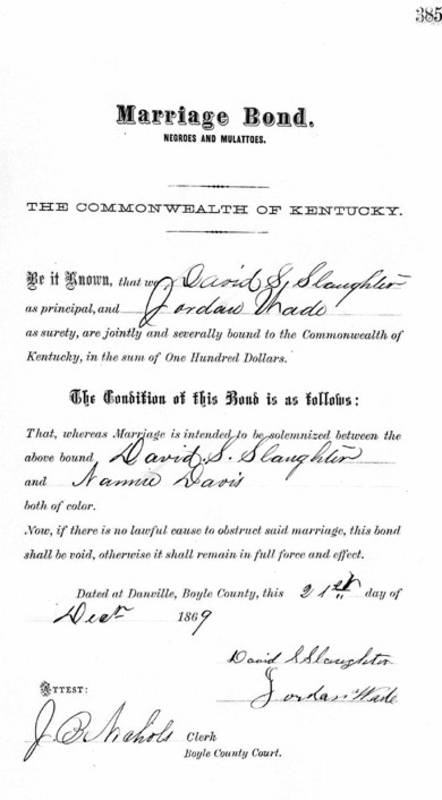 385
Marriage Bond.
NEGROES AND MULATTOES.
THE COMMONWEALTH OF KENTUCKY.
Be it Known, that we, David S. Slaughter
as principal, and Jordan Wade
as surety, are jointly and severally bound to the Commonwealth of
Kentucky, in the sum of One Hundred Dollars.
The Condition of this Bond is as follows:
That, whereas Marriage is intended to be solemnized between the
above bound David. S. Slaughter
and Nannie Davis
both of color.
Now, if there is no lawful cause to obstruct said marriage, this bond
shall be void, otherwise it shall remain in full force and effect.
Dated at Danville, Boyle County, this 21st day of
Decr 1869
David S Slaughter
Jordan Wade
ATTEST:
J. B. Nichols Clerk
Boyle County Court.